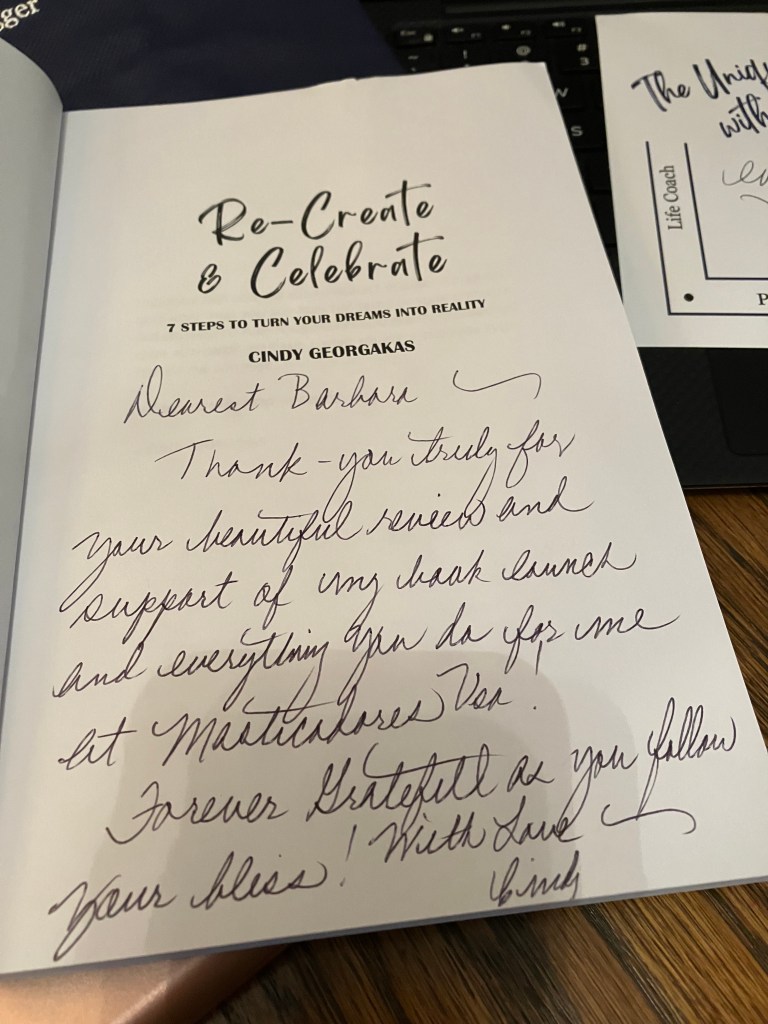 Re-Create
& Celebrate
7 STEPS TO TURN YOUR DREAMS INTO REALITY
CINDY GEORGAKAS
Dearest Barbara
Thank-you truly for
your beautiful review and
support of my book launch
and everything you do for me
at Masticadores Usa!
Forever Gratefull as you follow
Your bliss! With Love
Cindy
The Uniq
with
Life Coach
P
gger